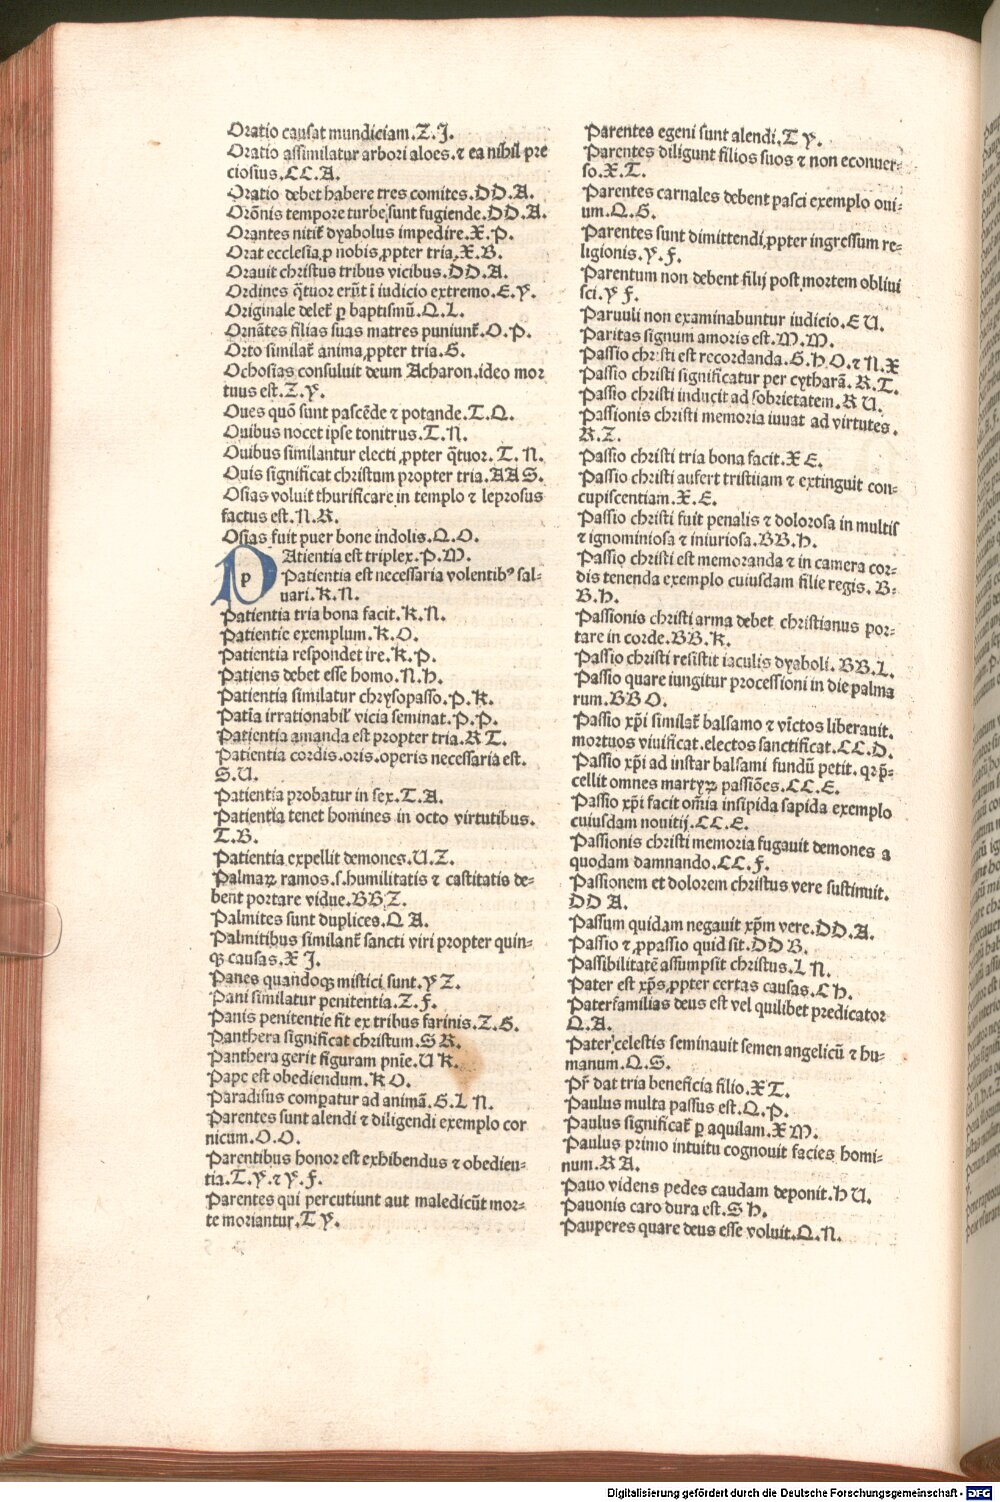 Oratio causat mundiciam.Z.J.
Oratio assimilatur arbori aloes.⁊ ea nihil pre
ciosius.CC.A.
Oratio debet habere tres comites.DD.A.
Orõnis tempore turbe sunt fugiende.DD.A.
Orantes nitit᷑ dyabolus impedire.X.P.
Orat ecclesia ꝓ nobis ꝓpter tria.X.B.
Orauit christus tribus vicibus.DD.A.
Ordines q̃tuor erũt ĩ iudicio extremo.E.Y.
Originale delet᷑ ꝑ baptismũ.Q.L.
Ornãtes filias suas matres puniunt᷑.O.P.
Orto similat᷑ anima ꝓpter tria.G.
Ochosias consuluit deum Acharon.ideo mor
tuus est.Z.Y.
Oues quõ sunt pascẽde ⁊ potande.T.Q.
Ouibus nocet ipse tonitrus.T.N.
Ouibus similantur electi ꝓpter q̃tuor.T.N.
Ouis significat christum propter tria.AA S.
Osias voluit thurificare in templo ⁊ leprosus
factus est.N.R.
Osias fuit puer bone indolis.Q.O.
p
PAtientia est triplex.P.M.
Patientia est necessaria volentibꝰ sal-
uari.K.N.
Patientia tria bona facit.K.N.
Patientie exemplum.K.O.
Patientia respondet ire.K.P.
Patiens debet esse homo.N.H.
Patientia similatur chrysopasso.P.K.
Patĩa irrationabil᷑ vicia seminat.P.P.
Patientia amanda est propter tria.R T.
Patientia cordis.oris.operis necessaria est.
S.U.
Patientia probatur in sex.T.A.
Patientia tenet homines in octo virtutibus.
T.B.
Patientia expellit demones.U.Z.
Palmaꝝ ramos.s.humilitatis ⁊ castitatis de-
bent portare vidue.BB Z.
Palmites sunt duplices.Q A.
Palmitibus similant᷑ sancti viri propter quin-
qꝫ causas.X J.
Panes quandoqꝫ mistici sunt.Y Z.
Pani similatur penitentia.Z.F.
Panis penitentie fit ex tribus farinis.Z.G.
Panthera significat christum.S R.
Panthera gerit figuram pñie.U K.
Pape est obediendum.K O.
Paradisus comparatur ad animã.G.L N.
Parentes sunt alendi ⁊ diligendi exemplo cor
nicum.O.O.
Parentibus honor est exhibendus ⁊ obedien-
tia.T.Y.⁊ Y.F.
Parentes qui percutiunt aut maledicũt mor-
te moriantur.T Y.
Parentes egeni sunt alendi.T Y.
Parentes diligunt filios suos ⁊ non econuer-
so.X.T.
Parentes carnales debent pasci exemplo oui-
um.Q.G.
Parentes sunt dimittendi ꝓpter ingressum re-
ligionis.Y.F.
Parentum non debent filij post mortem obliui
sci.Y F.
Paruuli non examinabuntur iudicio.E U.
Paritas signum amoris est.M.M.
Passio christi est recordanda.G.H O.⁊ N.X
Passio christi significatur per cytharã.R.T.
Passio christi inducit ad sobrietatem.R U.
Passionis christi memoria iuuat ad virtutes.
R.Z.
Passio christi tria bona facit.X E.
Passio christi aufert tristitiam ⁊ extinguit con-
cupiscentiam.X.E.
Passio christi fuit penalis ⁊ dolorosa in multis
⁊ ignominiosa ⁊ iniuriosa.BB.H.
Passio christi est memoranda ⁊ in camera cor-
dis tenenda exemplo cuiusdam filie regis.B-
B.H.
Passionis christi arma debet christianus por-
tare in corde.BB.K.
Passio christi resistit iaculis dyaboli.BB.L.
Passio quare iungitur processioni in die palma
rum.BB O.
Passio xp̃i similat᷑ balsamo ⁊ vĩctos liberauit.
mortuos viuificat.electos sanctificat.CC.D.
Passio xp̃i ad instar balsami fundũ petit.qꝛ p̃-
cellit omnes martyꝝ passiões.CC.E.
Passio xp̃i facit oĩa insipida sapida exemplo
cuiusdam nouitij.CC.E.
Passionis christi memoria fugauit demones a
quodam damnando.CC.F.
Passionem et dolorem christus vere sustinuit.
DD A.
Passum quidam negauit xp̃m vere.DD.A.
Passio ⁊ ꝓpassio quid sit.DD B.
Passibilitatẽ assumpsit christus.L N.
Pater est xp̃s ꝓpter certas causas.C H.
Paterfamilias deus est vel quilibet predicator
Q.A.
Pater celestis seminauit semen angelicũ ⁊ hu-
manum.Q.S.
Pr̃ dat tria beneficia filio.X T.
Paulus multa passus est.Q.P.
Paulus significat᷑ ꝑ aquilam.X M.
Paulus primo intuitu cognouit facies homi-
num.R A.
Pauo videns pedes caudam deponit.H U.
Pauonis caro dura est.S H.
Pauperes quare deus esse voluit.Q.N.
Digitalisierung gefördert durch die Deutsche Forschungsgemeinschaft - DFG